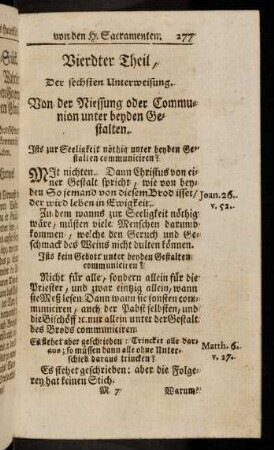 von den H. Sacramenten. 277
Vierdter Theil,
Der sechsten Unterweisung.
Von der Niessung oder Commu-
nion unter beyden Ge-
stalten.
Ists zur Seeligkeit nöthig unter beyden Ge-
stalten communiciren?
Mit nichten. Dann Christus von ei-
ner Gestalt spricht, wie von bey-
den So jemand von diesem Brod isset/
der wird leben in Ewigkeit.
Joan. 26.
v. 52.
Zu dem wanns zur Seeligkeit nöthig
wäre, müsten viele Menschen darum-
kommen, welche den Geruch und Ge-
schmack des Weins nicht dulten können.
Ists kein Gebott unter beyden Gestalten
communiciren?
Nicht für alle, sondern allein für die
Priester, und zwar eintzig allein, wann
sie Meß lesen. Dann wann sie sonsten com-
municiren, auch der Pabst selbsten, und
die Bischöff ꝛc. nur allein unter der Gestalt
des Brods communiciren.
Es stehet aber geschrieben: Trincket alle dar-
aus; so müssen dann alle ohne Unter-
schied daraus trincken?
Matth. 6.
v. 27.
Es stehet geschrieben: aber die Folge-
rey hat keinen Stich.
M 7 Warum?